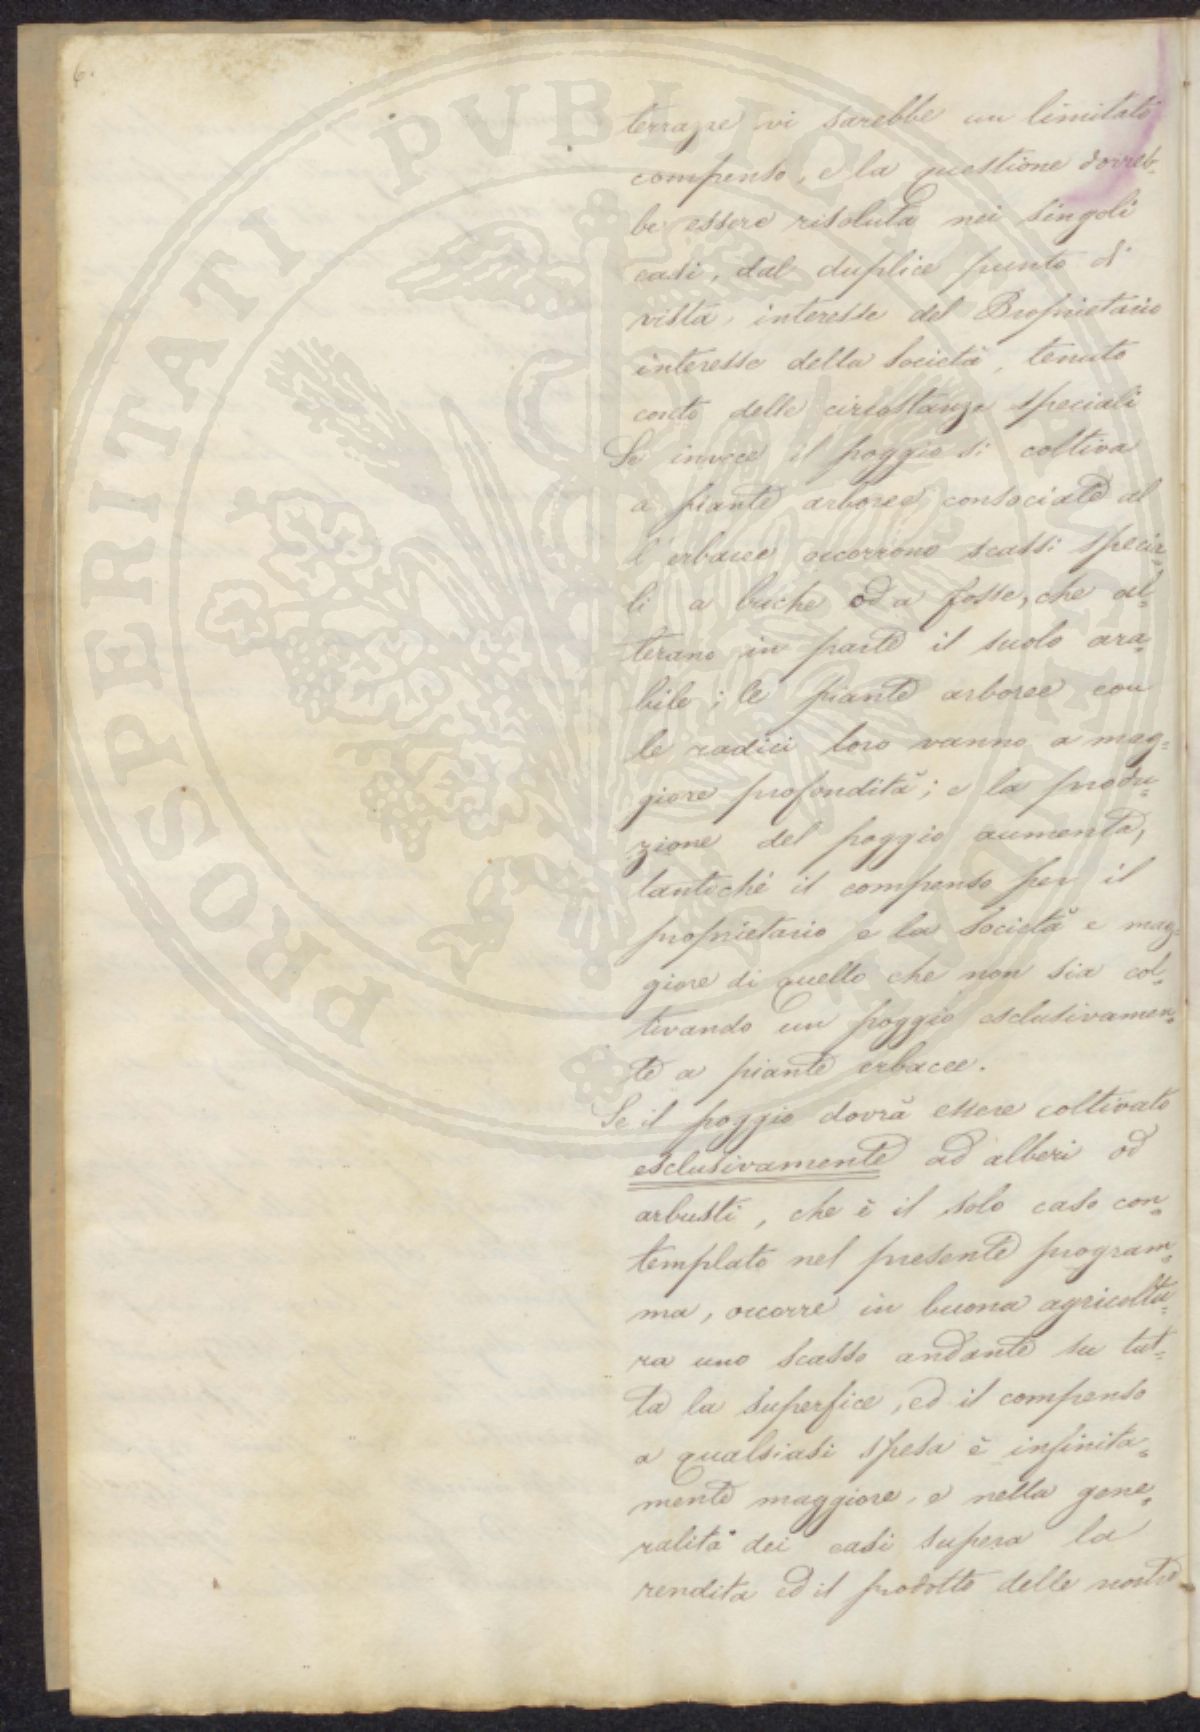 6.
terrazze vi sarebbe un limitato
compenso, e la questione dovreb-
be essere risoluta nei singoli
casi, dal duplice punto di
vista, interesse del Proprietario
interesse della Società, tenuto
conto delle circostanze speciali
Se invece il poggio si coltiva
a piante arboree consociate al
l'erbacee occorrono scassi specia-
li a buche od a fosse, che al-
terano in parte il suolo ara-
bile; le piante arboree con
le radici loro vanno a mag-
giore profondità; e la produ-
zione del poggio aumenta,
tantochè il compenso per il
proprietario e la Società e mag-
giore di quello che non sia col-
tivando un poggio esclusivamen-
te a piante erbacee.
Se il poggio dovrà essere coltivato
esclusivamente ad alberi od
arbusti, che è il solo caso con-
templato nel presente program-
ma, occorre in buona agricoltu-
ra uno scasso andante su tut-
ta la superfice, ed il compenso
a qualsiasi spesa è infinita-
mente maggiore, e nella gene-
ralità dei casi supera la
rendita ed il prodotto delle nostre
PROSPERITATI PVBLICAE